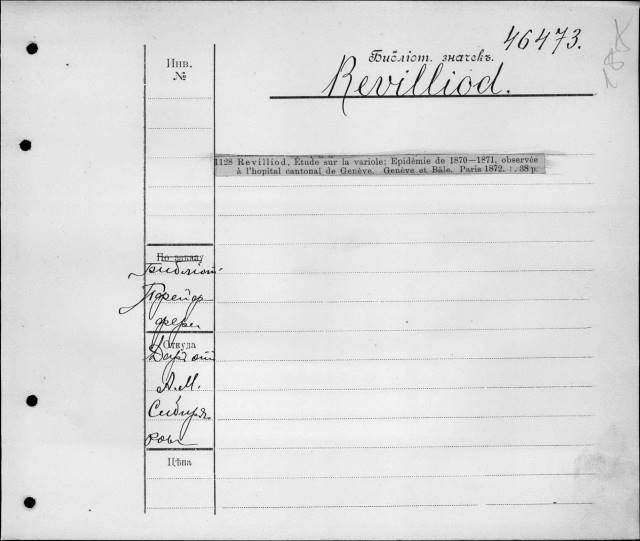 46473.
Библіот. значекъ.
Revilliod.
Инв.
№
1128 Revilliod, Étude sur la variole; Epidémie de 1870—1871, observée
à l'hopital cantonal de Genève. Genève et Bâle. Paris 1872. 38 p.
По заказу
Библіот.
Пфейф
фера
Откуда
Даръ отъ
А.М.
Сибиря
кова
Цѣна